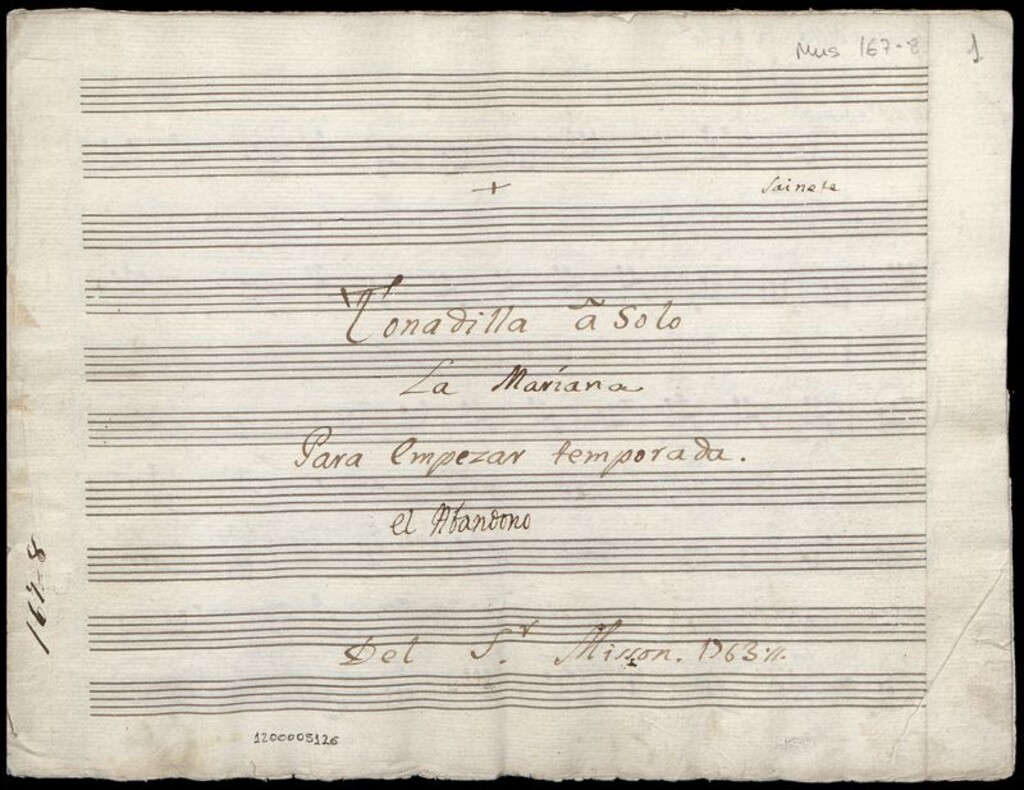 Mus 167-8 1
+ Sainete
Tonadilla â Solo
La Mariana
Para Empezar temporada.
el Abandono
Del S.r Misson. 1763.
167-8
1200005126